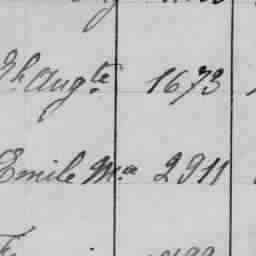 Jh Augte 1673
Emile Ma 2911